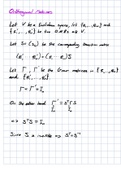 Orthogonal matrices
Let V be a Euclidean space, let {e₁,...,eₙ} and
{e'₁,...,e'ₙ} be two o.n.b.s of V.
Let S = (sᵢⱼ) be the corresponding transition matrix
(e'₁ ... e'ₙ) = (e₁ ... eₙ) S
Let Γ, Γ' be the Gram matrices in {e₁,...,eₙ}
and {e'₁,...,e'ₙ}.
Γ = Γ' = Iₙ
On the other hand Γ' = SᵀΓS
Iₙ Iₙ
=> SᵀS = Iₙ
Since S is invertible => Sᵀ = S⁻¹